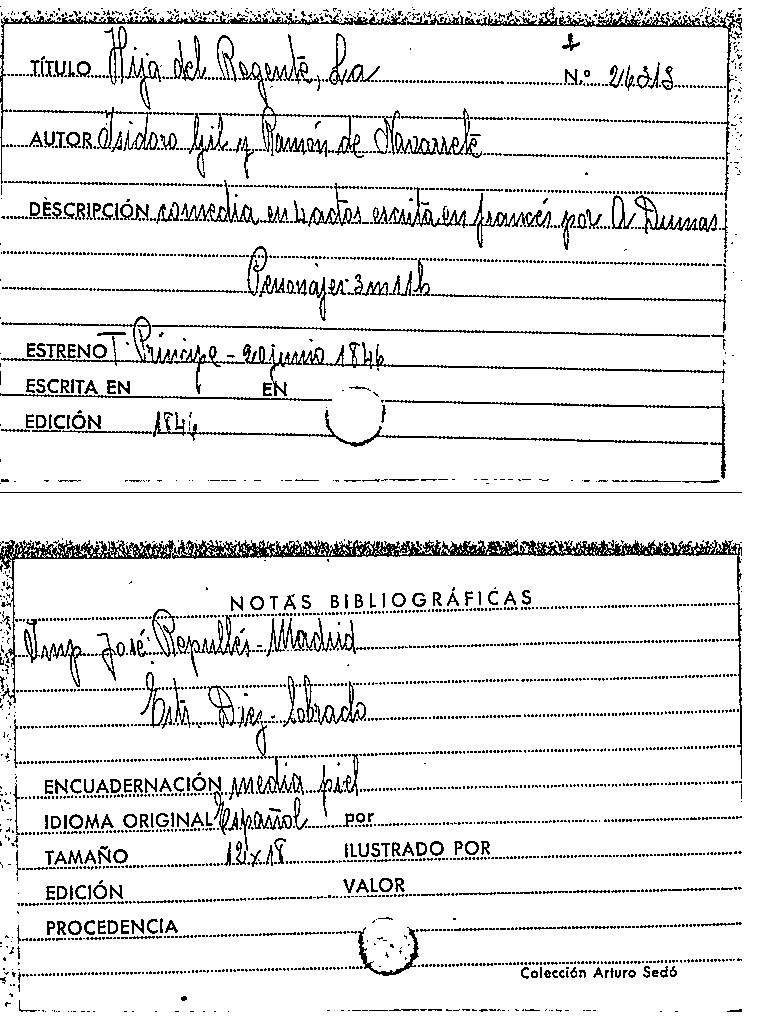 TÍTULO Hija del Regente, La N.º 26313
AUTOR Isidoro Gil y Ramón de Navarrete
DESCRIPCIÓN comedia en 4 actos escrita en francés por A Dumas
Personajes: 3 m 11 h
ESTRENO T. Principe - 20 junio 1846
ESCRITA EN EN
EDICIÓN 1846
NOTAS BIBLIOGRÁFICAS
Imp José Repullés - Madrid
Estr. Diez - Lobrado
ENCUADERNACIÓN media piel
IDIOMA ORIGINAL Español por
TAMAÑO 12 x 18 ILUSTRADO POR
EDICIÓN VALOR
PROCEDENCIA
Colección Arturo Sedó